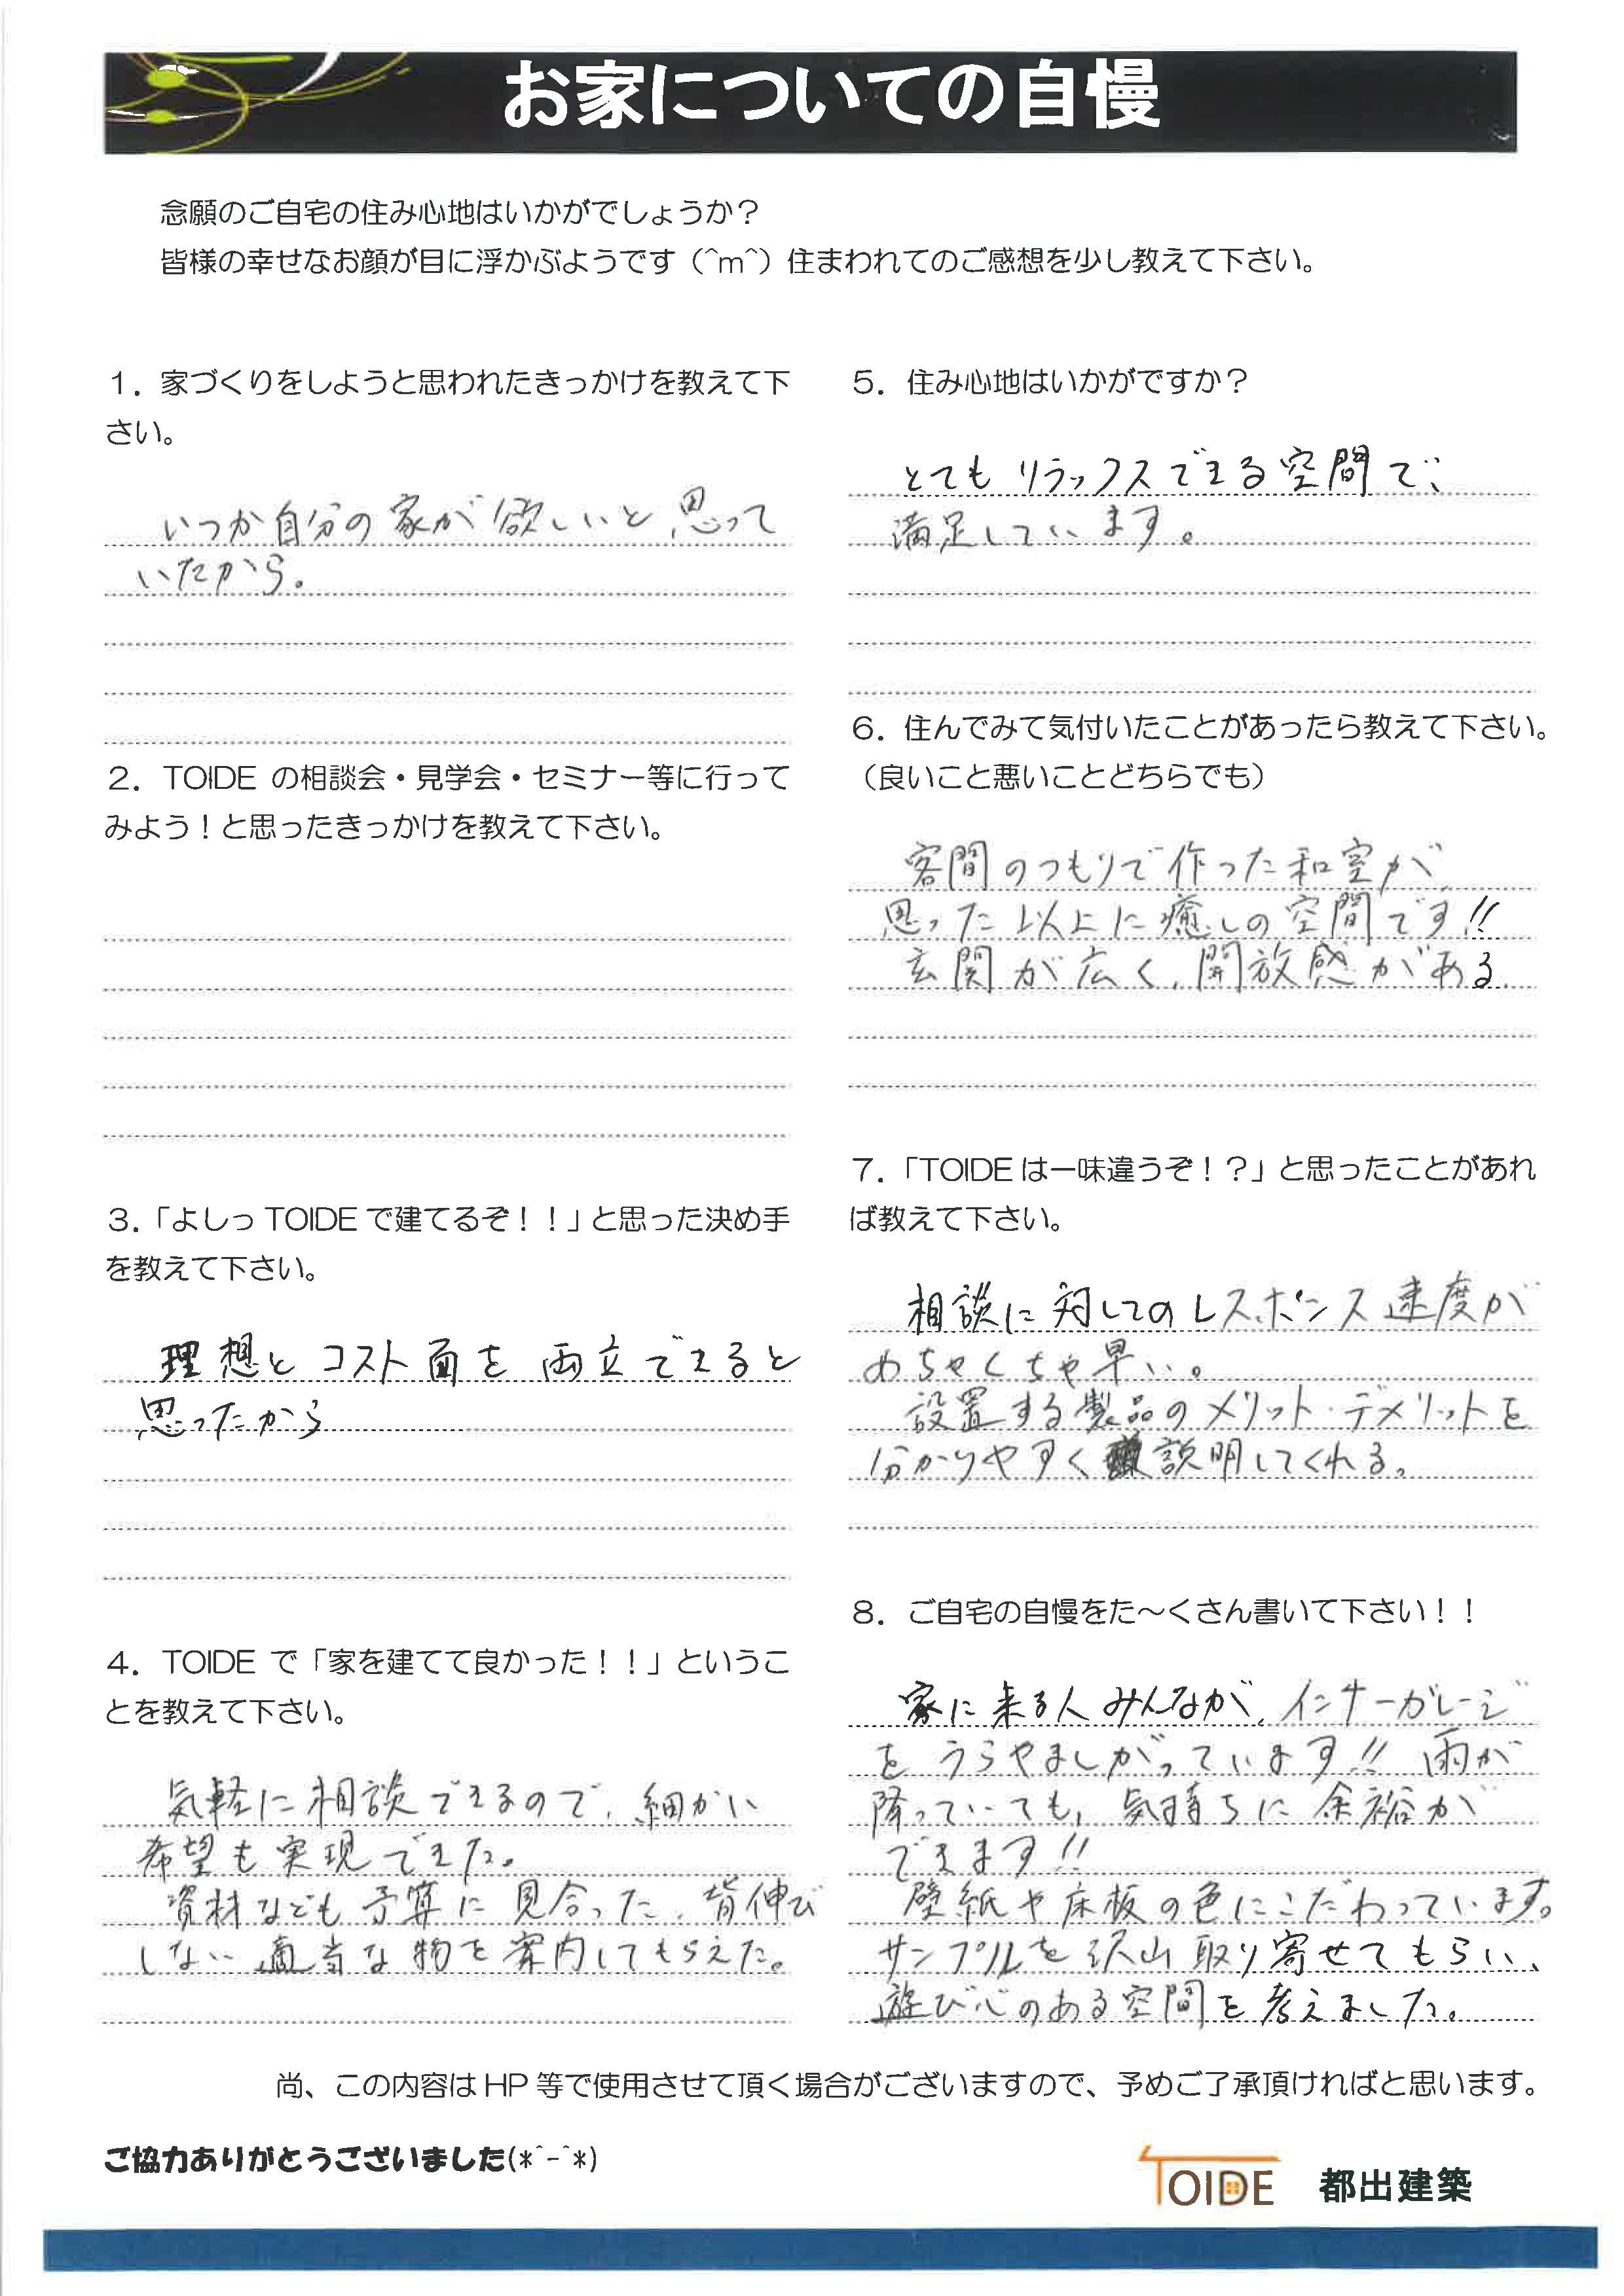 お家についての自慢
念願のご自宅の住み心地はいかがでしょうか？
皆様の幸せなお顔が目に浮かぶようです（^m^）住まわれてのご感想を少し教えて下さい。
１．家づくりをしようと思われたきっかけを教えて下
さい。
いつか自分の家が欲しいと思って
いたから。
２．TOIDE の相談会・見学会・セミナー等に行って
みよう！と思ったきっかけを教えて下さい。
３．「よしっ TOIDE で建てるぞ！！」と思った決め手
を教えて下さい。
理想とコスト面を両立できると
思ったから
４．TOIDE で「家を建てて良かった！！」というこ
とを教えて下さい。
気軽に相談できるので、細かい
希望も実現できた。
資材なども予算に見合った、背伸び
しない適当な物を案内してもらえた。
５．住み心地はいかがですか？
とてもリラックスできる空間で、
満足しています。
６．住んでみて気付いたことがあったら教えて下さい。
（良いこと悪いことどちらでも）
客間のつもりで作った和室が
思った以上に癒しの空間です!!
玄関が広く、開放感がある
７．「TOIDE は一味違うぞ！？」と思ったことがあれ
ば教えて下さい。
相談に対してのレスポンス速度が
めちゃくちゃ早い。
設置する製品のメリット・デメリットを
分かりやすく説明してくれる。
８．ご自宅の自慢をた～くさん書いて下さい！！
家に来る人みんなが、インナーガレージ
をうらやましがっています!! 雨が
降っていても、気持ちに余裕が
できます!!
壁紙や床板の色にこだわっています。
サンプルを沢山取り寄せてもらい、
遊び心のある空間を考えました。
尚、この内容は HP 等で使用させて頂く場合がございますので、予めご了承頂ければと思います。
ご協力ありがとうございました(*^-^*)
TOIDE 都出建築